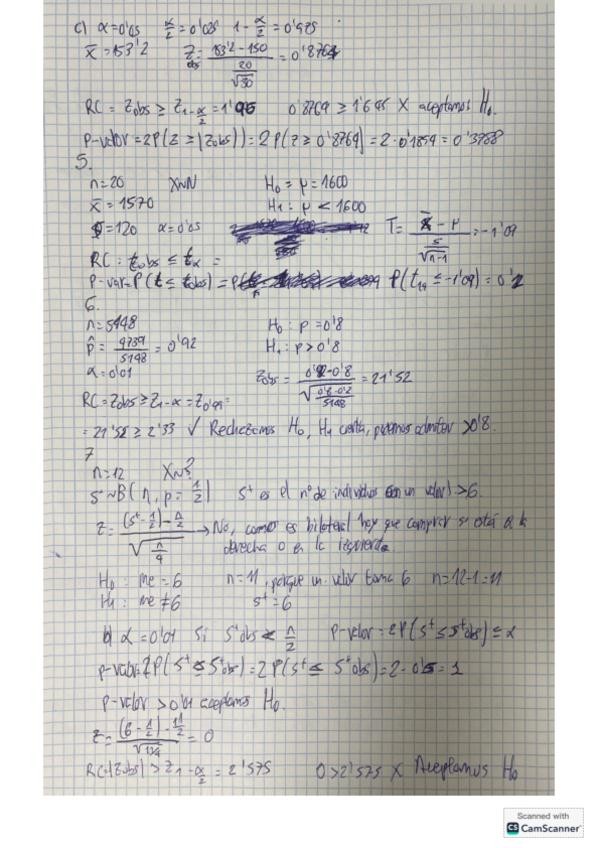 c) α=0'05 α/2=0'025 1-α/2=0'975
x̄=153'2 Zobs=(153'2-150)/(20/√30)=0'8764
RC = Zobs ≥ Z1-α/2=1'96 0'8764 ≥ 1'645 X aceptamos H0
P-valor=2P(Z≥|Zobs|)=2P(Z≥0'8764)=2·0'1894=0'3788
5.
n=20 X~N H0=μ=1600
x̄=1570 H1: μ<1600
S=120 α=0'05 T=(x̄-μ)/(S/√n-1)=-1'09
RC: tobs ≤ tα =
P-var=P(t≤tobs)= P(t19≤-1'09)=0'2
6.
n=5148 H0: p=0'8
p̂=4739/5148=0'92 H1: p>0'8
α=0'01 Zobs=(0'92-0'8)/√(0'8·0'2/5148)=21'52
RC=Zobs≥Z1-α=Z0'99=
=21'52≥2'33 ✓ Rechazamos H0, H1 cierta, podemos admitir >0'8.
7
n=12 X~?
S+~B(n, p=1/2) S+ es el nº de individuos con un valor >6.
Z=((S+-1/2)-n/2)/√(n/4) → No, como es bilateral hay que comprobar si está a la
derecha o en la izquierda.
H0: me=6 n=11, porque un valor toma 6 n=12-1=11
H1: me≠6 S+=6
b) α=0'01 Si S+obs< n/2 P-valor=2P(S+≤S+obs)≤α
p-valor=2P(S+≤S+obs)=2P(S+≤S+obs)=2·0'5=1
p-valor>0'01 aceptamos H0.
Z=((6-1/2)-11/2)/√(11/4)=0
RC=|Zobs|>Z1-α/2=2'575 0>2'575 X Aceptamos H0
Scanned with
CS CamScanner